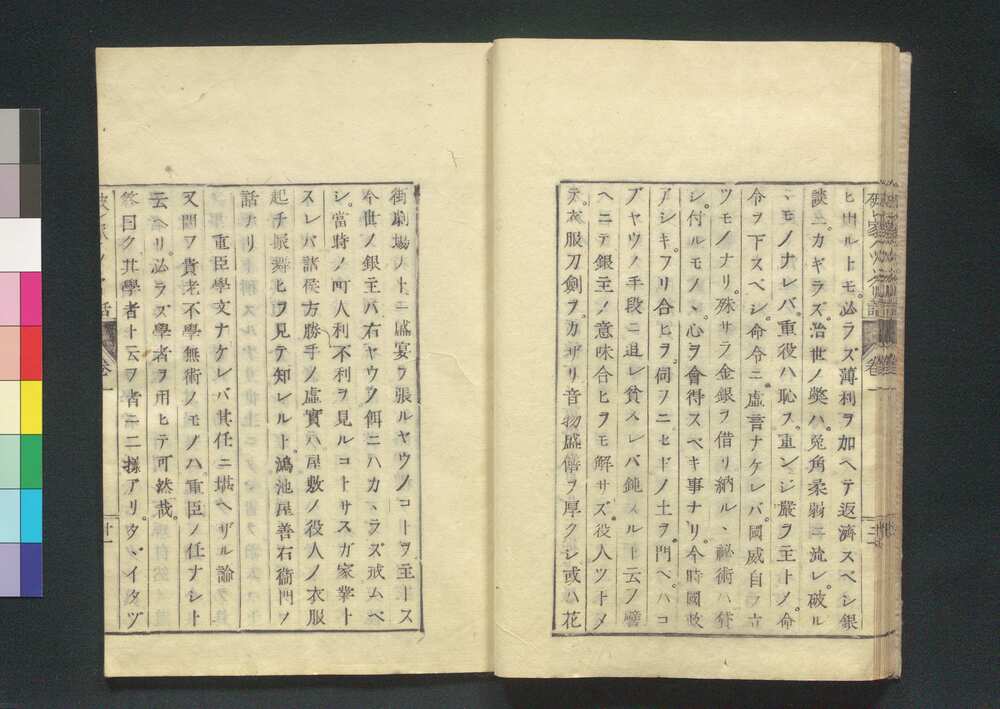 ヒ出ルトモ。必ラズ薄利ヲ加ヘテ返濟スベシ銀
談ニカギラズ。治世ノ弊ハ。兎角柔弱ニ流レ。破ル
ヽモノナレバ。重役ハ恥ヲ重ンジ嚴ヲ主トノ。命
令ヲ下スベシ。命令ニ虚言ナケレバ。國威自ラ立
ツモノナリ。殊サラ金銀ヲ借リ納ルヽ祕術ハ貸
シ。付ルモノヽ心ヲ會得スベキ事ナリ。今時國政
アシキ。フリ合ヒヲ。伺ヲニセドノ士ヲ。門ヘ。ハコ
ブヤウノ手段ニ追レ貧スレバ鈍スルト云ノ譬
ヘニテ銀主ノ意味合ヒヲモ解サズ。役人ツトメ
テ。衣服刀劍ヲ。カザリ音物盛儐ヲ厚クシ或ハ花
街劇場ノトニ盛宴ヲ張ルヤウノコトヲ主トス
今世ノ銀主バ右ヤウノ餌ニハカヽラズ戒ムベ
シ。當時ノ町人利不利ヲ見ルコトサスガ家業ト
スレバ諸侯方勝手ノ虚實ハ。屋敷ノ役人ノ衣服
起チ振舞ヒヲ見テ知レルト。鴻池屋善右衞門ノ
話ナリ
重臣學文ナケレバ其任ニ堪ヘザル論
又問フ貴老不學無術ノモノハ。重臣ノ任ナシト
云ヘリ。必ラズ學者ヲ用ヒテ可然哉。
答曰ク其學者ト云ヲ者ニ二樣アリ。タヾイタヅ
卷一
十一